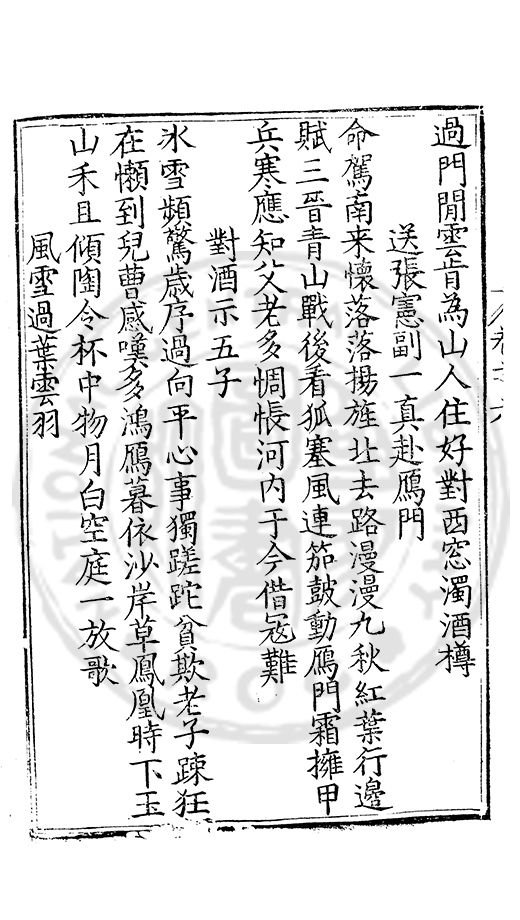 過門閒雲肯為山人住好對西窓濁酒樽
送張憲副一真赴鴈門
命駕南来懷落落揚旌北去路漫漫九秋紅葉行邊
賦三晉青山戰後看狐塞風連笳鼓動鴈門霜擁甲
兵寒應知父老多惆悵河内于今借冦難
對酒示五子
氷雪頻驚歳序過向平心事獨蹉跎貧欺老子踈狂
在懶到兒曹感嘆多鴻鴈暮依沙岸草鳳凰時下玉
山禾且傾陶令杯中物月白空庭一放歌
風雪過葉雲羽